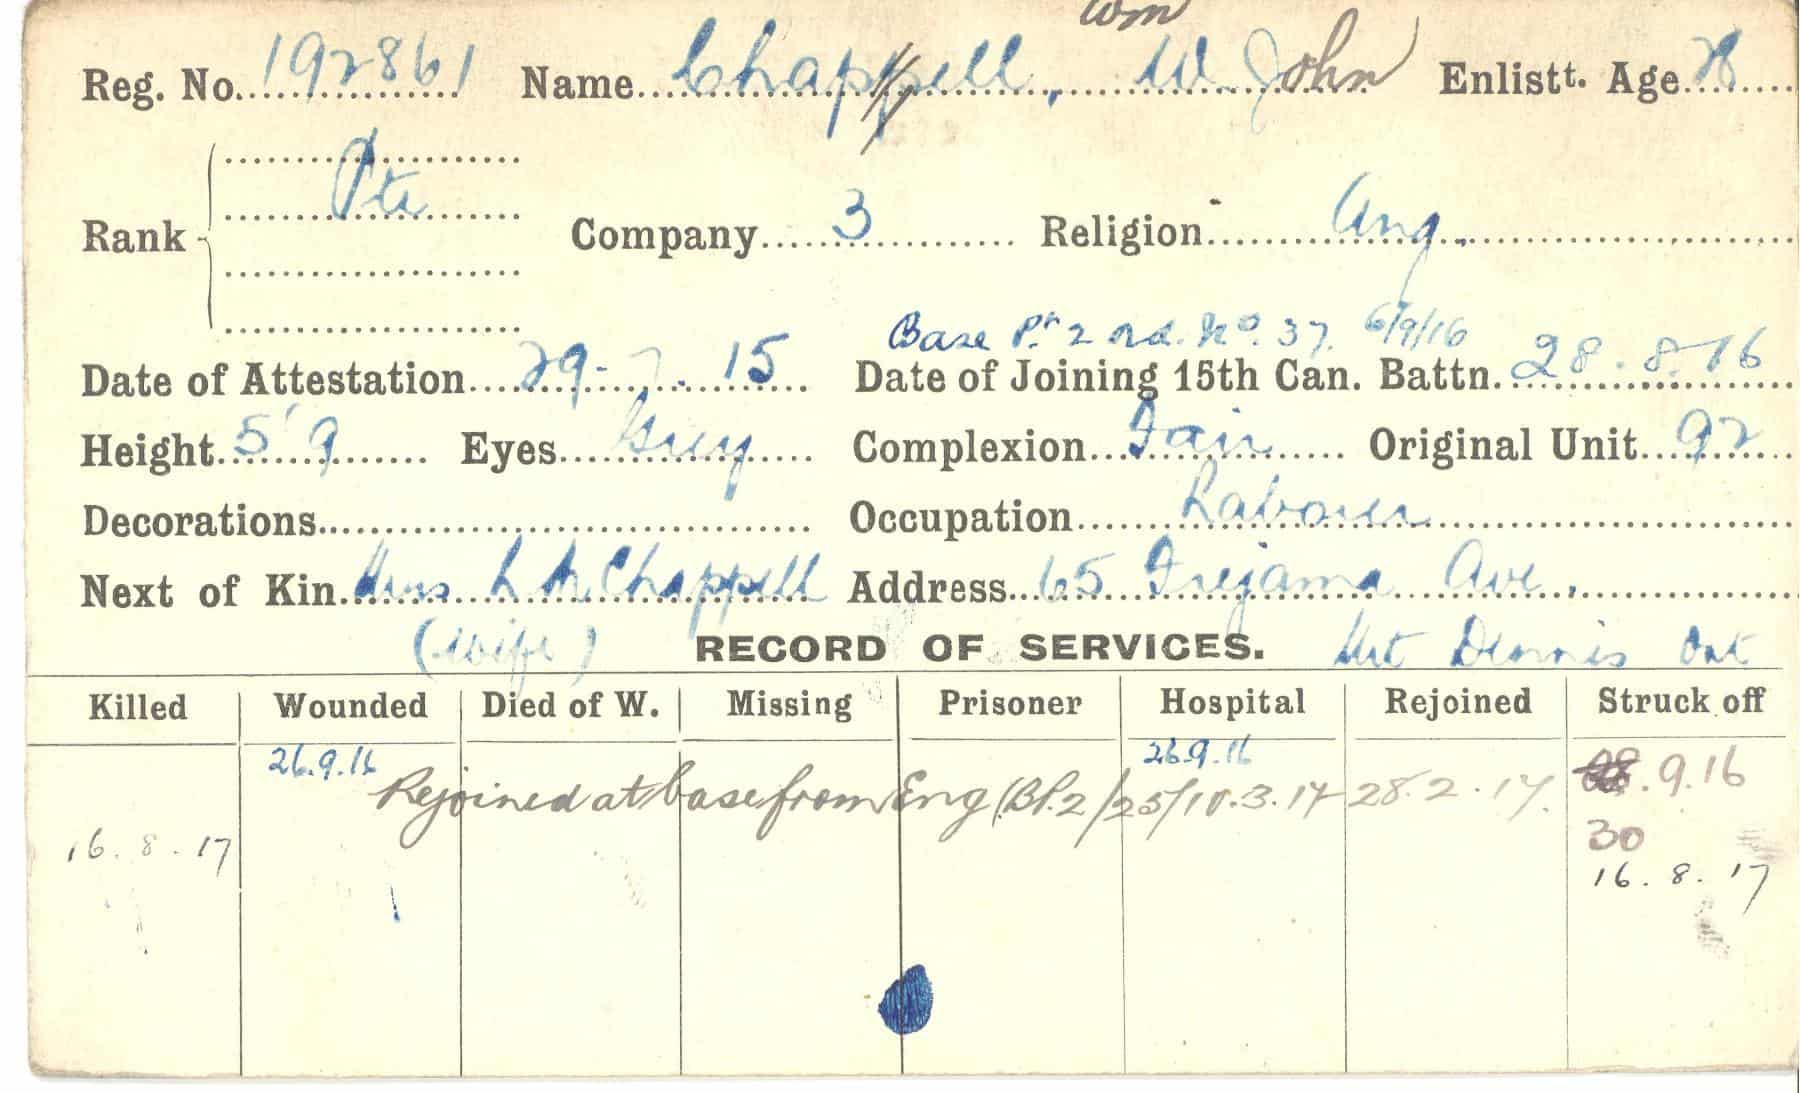 Wm
Reg. No. 192861 Name Chappell, W. John Enlistt. Age 28
Rank Pte Company 3 Religion Ang.
Base Pt 2 Nº. 37. 6/9/16
Date of Attestation 29-7.15 Date of Joining 15th Can. Battn. 28.8.16
Height 5'9 Eyes Grey Complexion Fair Original Unit 92
Decorations Occupation Labourer
Next of Kin Mrs Chappell Address 65 Ave,
(wife) RECORD OF SERVICES. Mt Dennis Ont
Killed Wounded Died of W. Missing Prisoner Hospital Rejoined Struck off
26.9.16 26.9.16
Rejoined at base from Eng (BP.2/25/10.3.17 28.2.17. .9.16
30
16.8.17 16.8.17